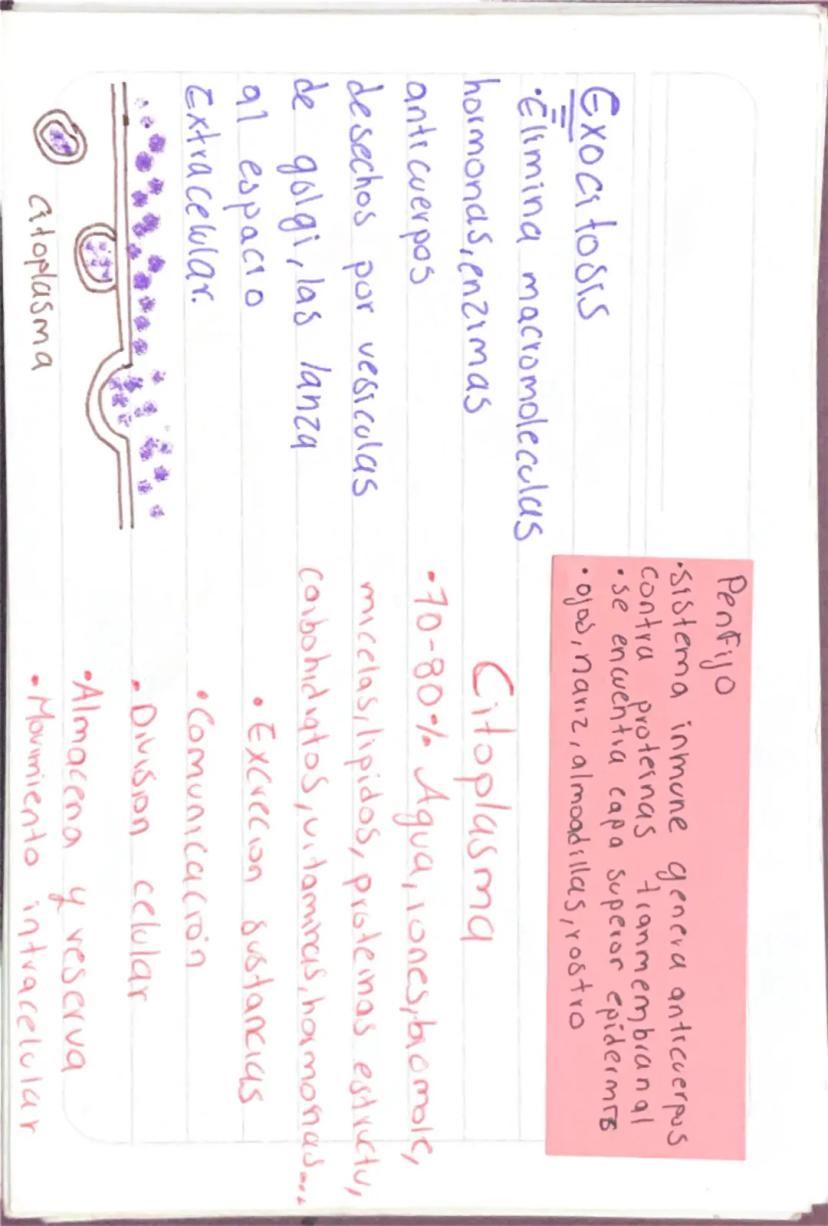 Exocitosis
•Elimina macromoleculas
hormonas, enzimas
anticuerpos
desechos por vesiculas
de golgi, las lanza
al espacio
Extracelular.
citoplasma
Penfijo
•sistema inmune genera anticuerpos
contra proteinas tranmembranal
•se encuentra capa superior epidermis
•ojos, nariz, almoadillas, rostro
Citoplasma
•70-80% Agua, iones, biomole,
micelas, lipidos, proteinas estructu,
carbohidratos, vitaminas, hormonas...
•Excrecion sustancias
•Comunicación
•Division celular
•Almacena y reserva
•Movimiento intracelular